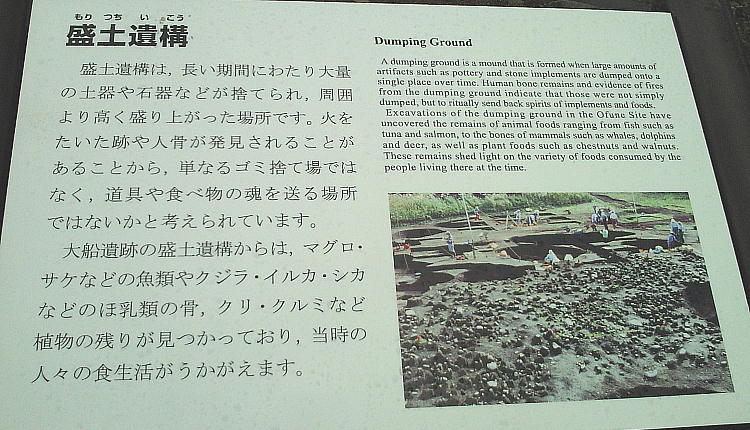 もり つち い こう
盛土遺構
盛土遺構は，長い期間にわたり大量
の土器や石器などが捨てられ，周囲
より高く盛り上がった場所です。火を
たいた跡や人骨が発見されることが
あることから，単なるゴミ捨て場では
なく，道具や食べ物の魂を送る場所
ではないかと考えられています。
大船遺跡の盛土遺構からは，マグロ・
サケなどの魚類やクジラ・イルカ・シカ
などのほ乳類の骨，クリ・クルミなど
植物の残りが見つかっており，当時の
人々の食生活がうかがえます。
Dumping Ground
A dumping ground is a mound that is formed when large amounts of
artifacts such as pottery and stone implements are dumped onto a
single place over time. Human bone remains and evidence of fires
from the dumping ground indicate that those were not simply
dumped, but to ritually send back spirits of implements and foods.
Excavations of the dumping ground in the Ofune Site have
uncovered the remains of animal foods ranging from fish such as
tuna and salmon, to the bones of mammals such as whales, dolphins
and deer, as well as plant foods such as chestnuts and walnuts.
These remains shed light on the variety of foods consumed by the
people living there at the time.